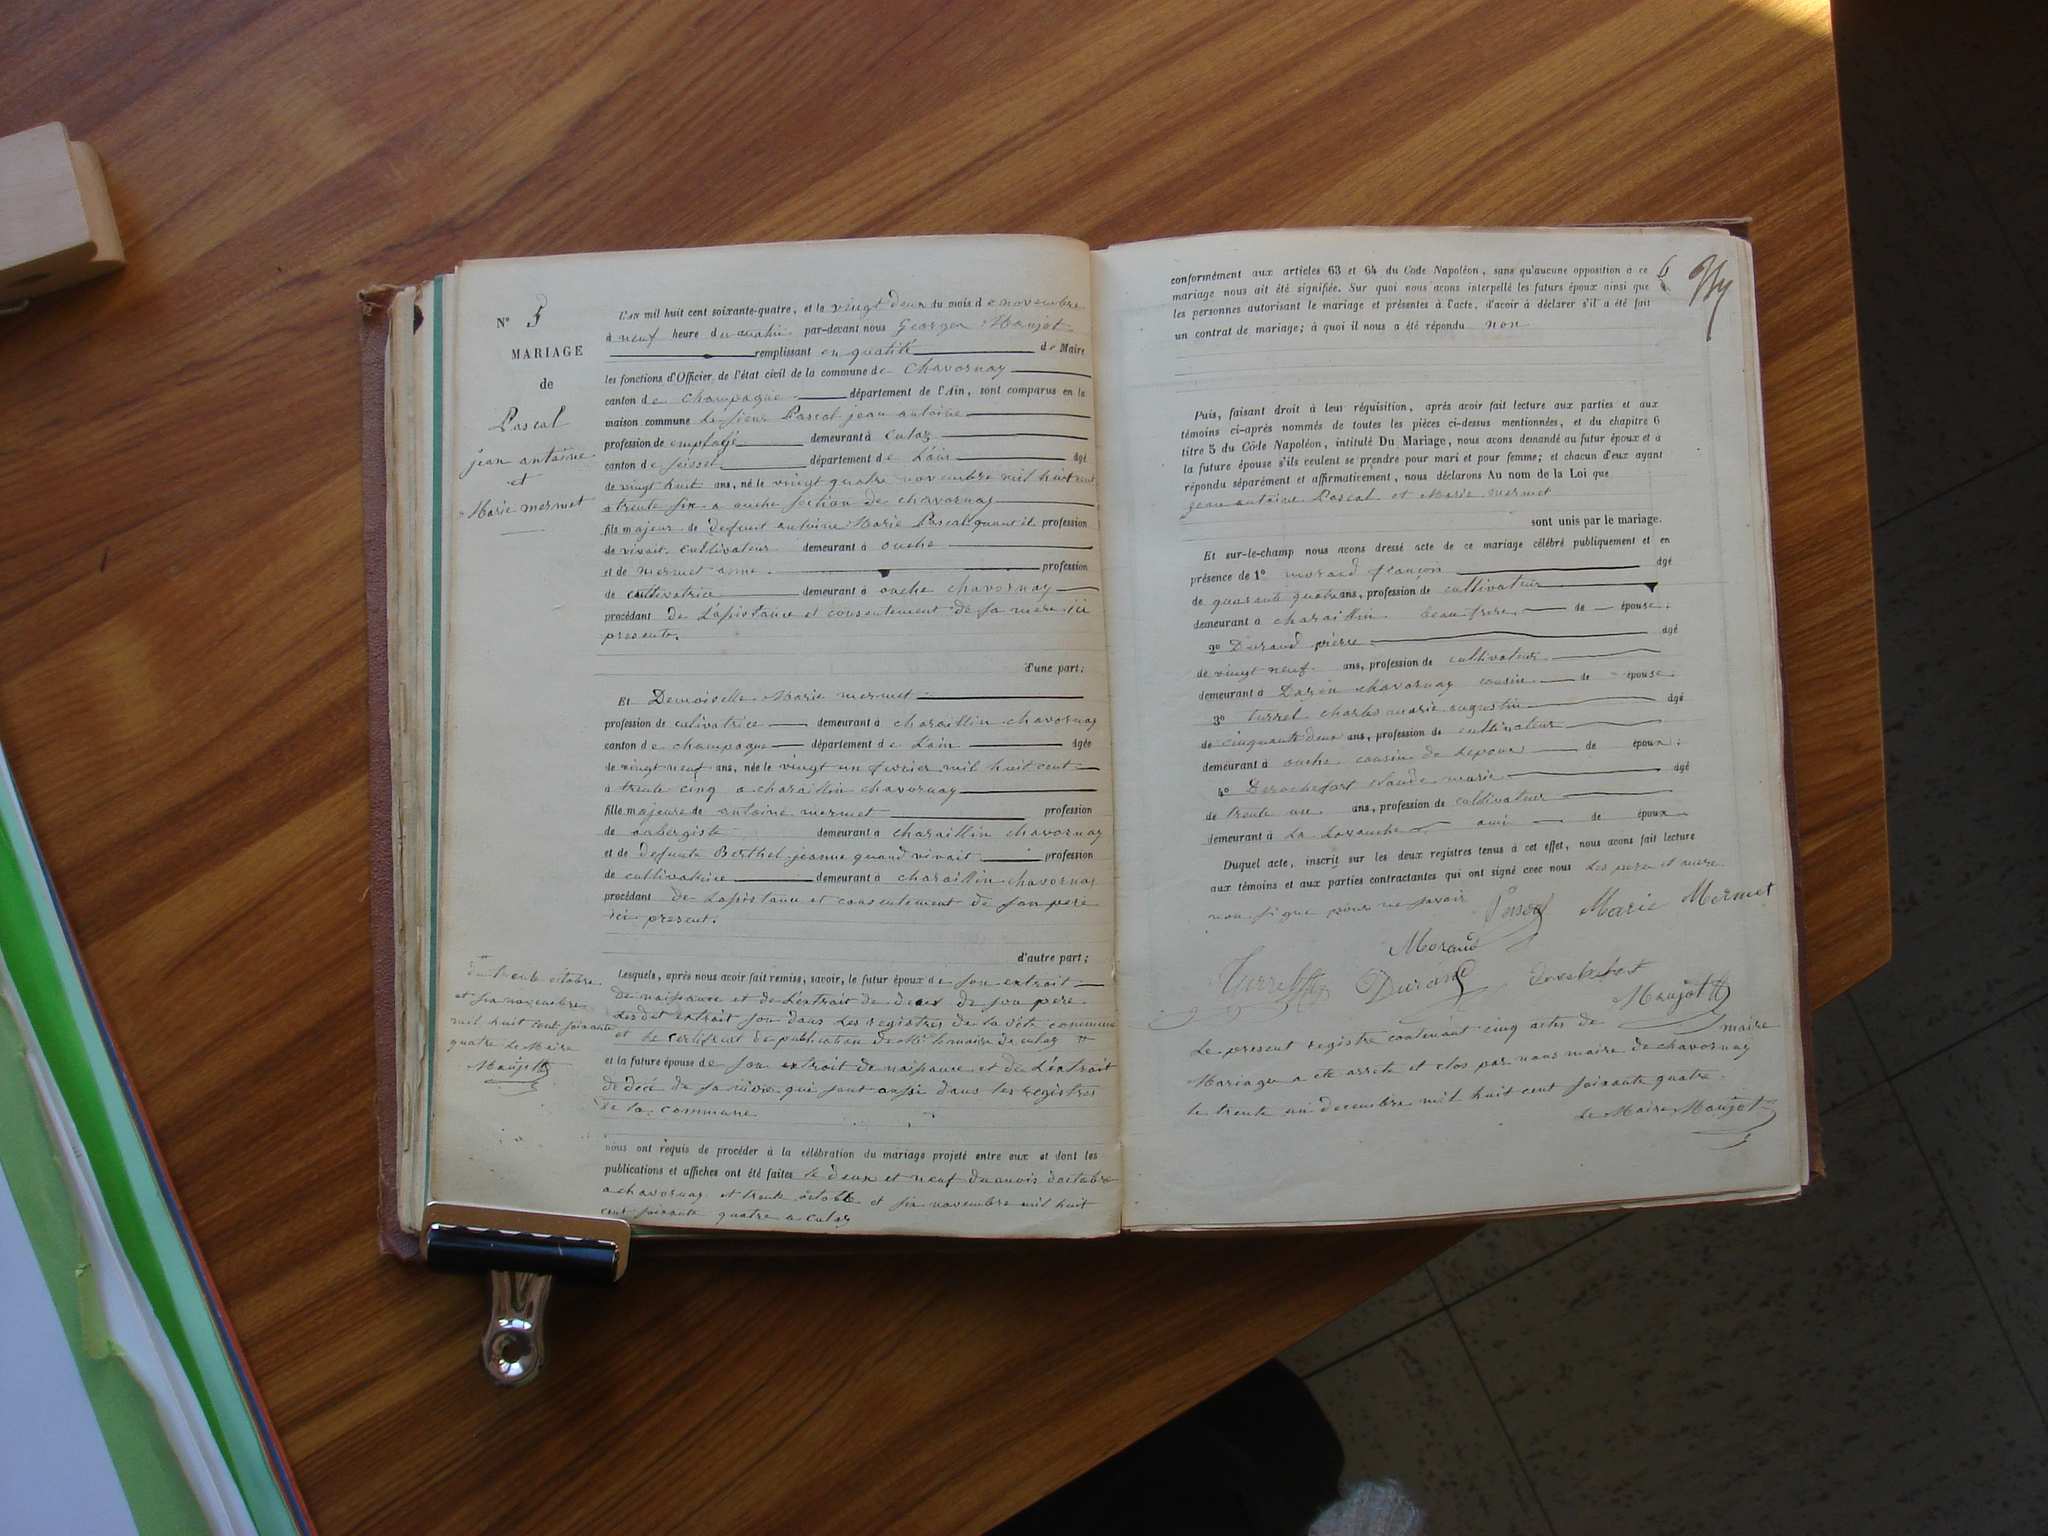 N° 5
MARIAGE
de
Pascal
jean antoine
et
Marie mermet
L'an mil huit cent soixante-quatre, et le vingt deux du mois de novembre
à neuf heure du matin par-devant nous Georges Maujot
remplissant en qualité de Maire
les fonctions d'Officier de l'état civil de la commune de Chavornay
canton de Champagne département de l'Ain, sont comparus en la
maison commune le sieur Pascal jean antoine
profession de employé demeurant à Culoz
canton de seissel département de L'ain âgé
de vingt huit ans, né le vingt quatre novembre mil huit cent
trente six a ouche section de chavornay
fils majeur de defunt antoine Marie Pascal quant il profession
de vivait cultivateur demeurant à ouche
et de mermet profession
de cultivatrice demeurant à ouche chavornay
procédant de L'assistance et consentement de sa mere ici
presente.
d'une part;
Et Demoiselle Marie mermet
profession de cultivatrice demeurant à charaillin chavornay
canton de champagne département de L'ain âgée
de vingt neuf ans, née le vingt un fevrier mil huit cent
trente cinq a charaillin chavornay
fille majeure de antoine mermet profession
de aubergiste demeurant à charaillin chavornay
et de defunte Berthet jeanne quand vivait profession
de cultivatrice demeurant à charaillin chavornay
procédant de Lassistance et consentement de son pere
ici present.
d'autre part;
Lesquels, après nous avoir fait remise, savoir, le futur époux de son extrait
de naissance et de L'extrait de deces de son pere
Lesdet extrait son dans Les registres de la dite commune
et le certificat de publication de Mr le maire de culoz #
et la future épouse de son extrait de naissance et de L'extrait
de décé de sa mère qui sont aussi dans les registres
de la commune
# du trente octobre
et six novembre
mil huit cent soixante
quatre Le Maire
Maujot
nous ont requis de procéder à la célébration du mariage projeté entre eux et dont les
publications et affiches ont été faites le deux et neuf du mois doctobre
a chavornay et trente octobre et six novembre mil huit
cent soixante quatre a culoz
6
conformément aux articles 63 et 64 du Code Napoléon, sans qu'aucune opposition à ce
mariage nous ait été signifiée. Sur quoi nous avons interpellé les futurs époux ainsi que
les personnes autorisant le mariage et présentes à l'acte, d'avoir à déclarer s'il a été fait
un contrat de mariage; à quoi il nous a été répondu non
Puis, faisant droit à leur réquisition, après avoir fait lecture aux parties et aux
témoins ci-après nommés de toutes les pièces ci-dessus mentionnées, et du chapitre 6
titre 5 du Code Napoléon, intitulé Du Mariage, nous avons demandé au futur époux et à
la future épouse s'ils veulent se prendre pour mari et pour femme; et chacun d'eux ayant
répondu séparément et affirmativement, nous déclarons Au nom de la Loi que
jean antoine Pascal et Marie mermet
sont unis par le mariage.
Et sur-le-champ nous avons dressé acte de ce mariage célébré publiquement et en
présence de 1° morand françois âgé
de quarante quatre ans, profession de cultivateur
demeurant à charaillin beau frere de épouse;
2° Durand pierre âgé
de vingt neuf ans, profession de cultivateur
demeurant à chavornay cousin de épouse
3° turrel charles marie augustin âgé
de cinquante deux ans, profession de cultivateur
demeurant à ouche cousin de Lepoux de époux;
4° Derochefort claude marie âgé
de trente un ans, profession de cultivateur
demeurant à La Lavanche ami de époux
Duquel acte, inscrit sur les deux registres tenus à cet effet, nous avons fait lecture
aux témoins et aux parties contractantes qui ont signé avec nous Les pere et mere
non signe pour ne savoir Pascal Marie Mermet
Morand
Turrel Durand
Maujot
Le present registre contenant cinq actes de maire
Mariages a ete arrêté et clos par nous maire de chavornay
le trente un decembre mil huit cent soixante quatre
Le Maire Maujot